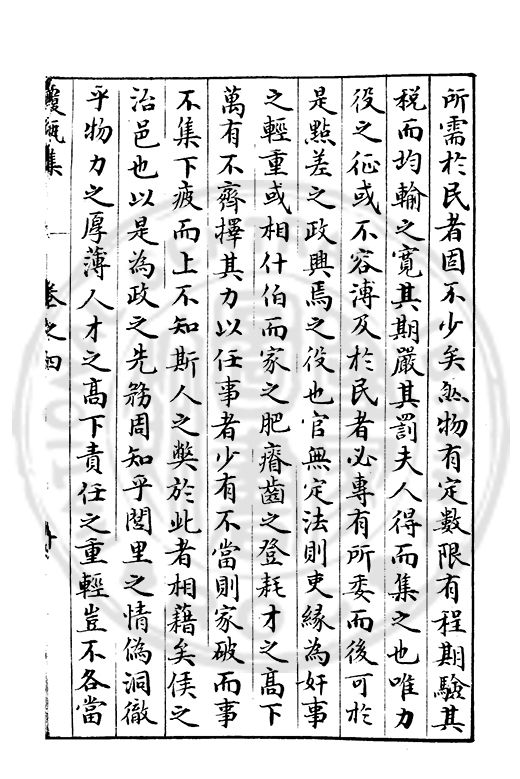 所需於民者固不少矣然物有定數限有程期驗其
税而均輸之寬其期嚴其罰夫人得而集之也唯力
役之征或不容溥及於民者必專有所委而後可於
是點差之政興焉之役也官無定法則吏緣為奸事
之輕重或相什伯而家之肥瘠齒之登耗才之髙下
萬有不齊擇其力以任事者少有不當則家破而事
不集下疲而上不知斯人之弊於此者相藉矣侯之
治邑也以是為政之先務周知乎閭里之情偽洞徹
乎物力之厚薄人才之髙下責任之重輕豈不各當
集 卷之四